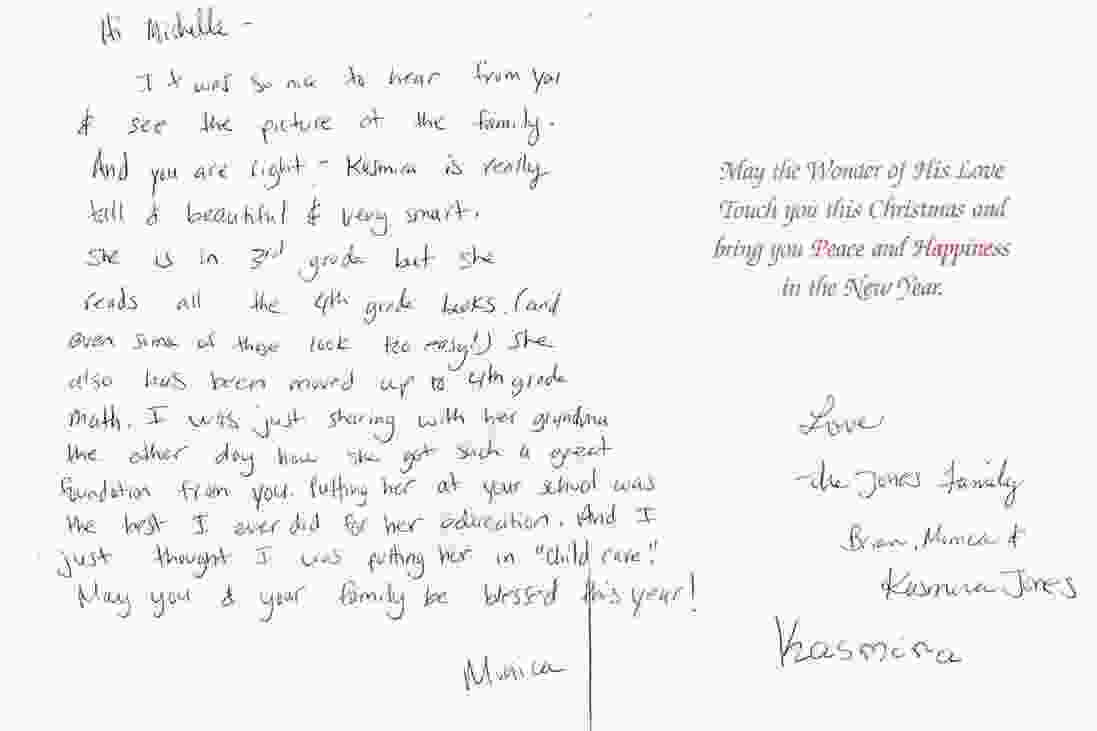 Hi Michelle -
It was so nice to hear from you
& see the picture of the family.
And you are right - Kasmira is really
tall & beautiful & very smart.
She is in 3rd grade but she
reads all the 4th grade books. (and
even some of those look too easy!) She
also has been moved up to 4th grade
math. I was just sharing with her grandma
the other day how she got such a great
foundation from you. Putting her at your school was
the best I ever did for her education. And I
just thought I was putting her in "child care".
May you & your family be blessed this year!
Monica
May the Wonder of His Love
Touch you this Christmas and
bring you Peace and Happiness
in the New Year.
Love
The Jones Family
Brian, Monica &
Kasmira Jones
Kasmira